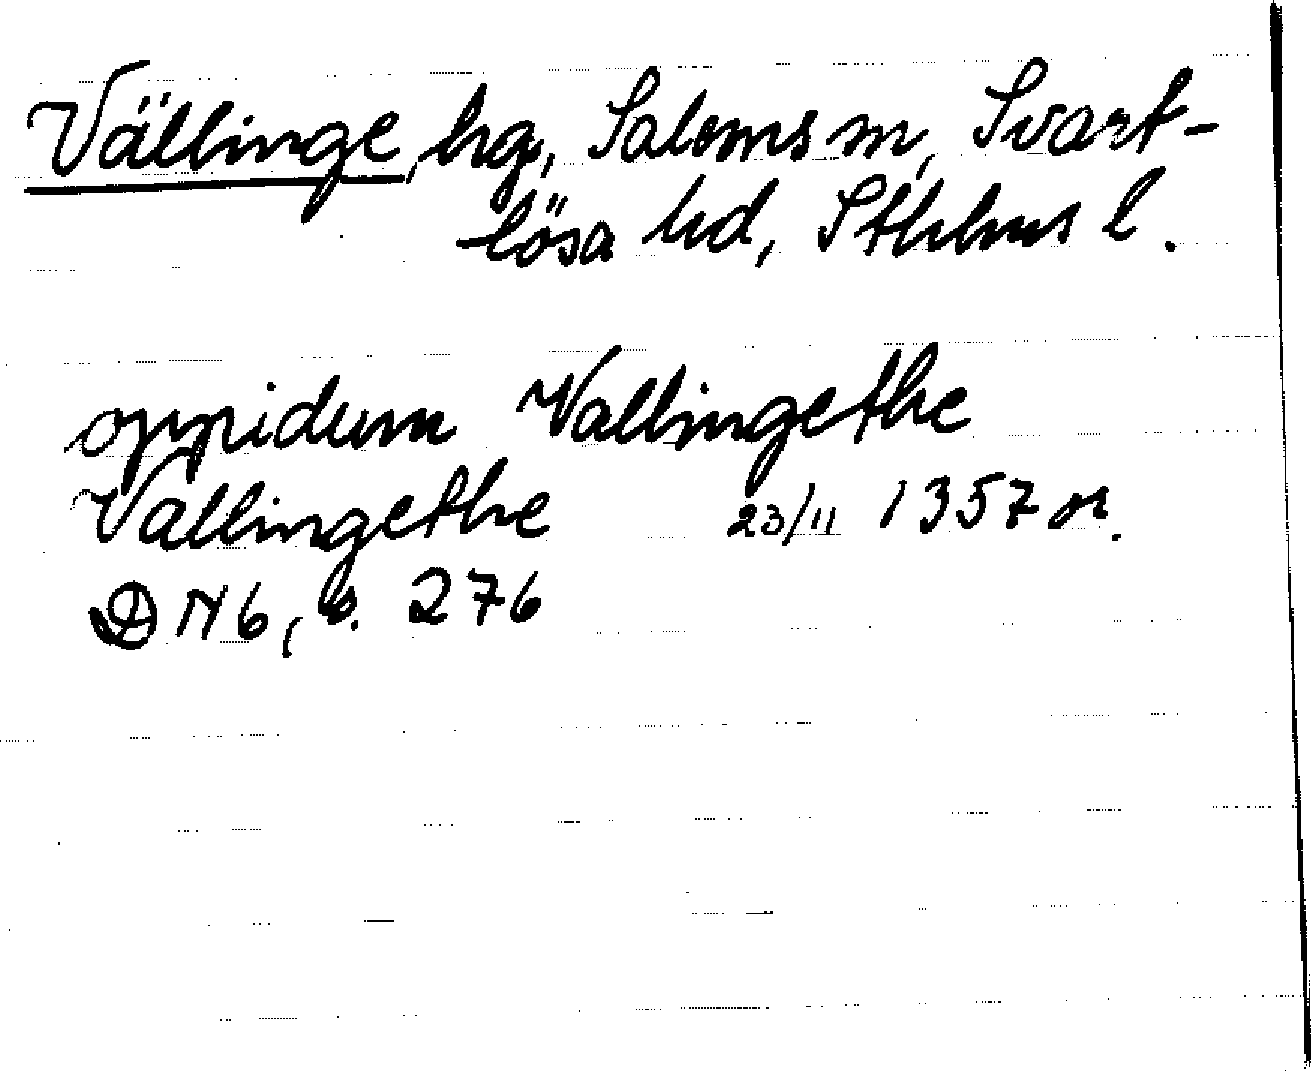 Vällinge, hg, Salems sn, Svart-
lösa hd, Sthlms l.
oppidum Vallingethe
Vallingethe 23/11 1357 or.
DN 6, s. 276